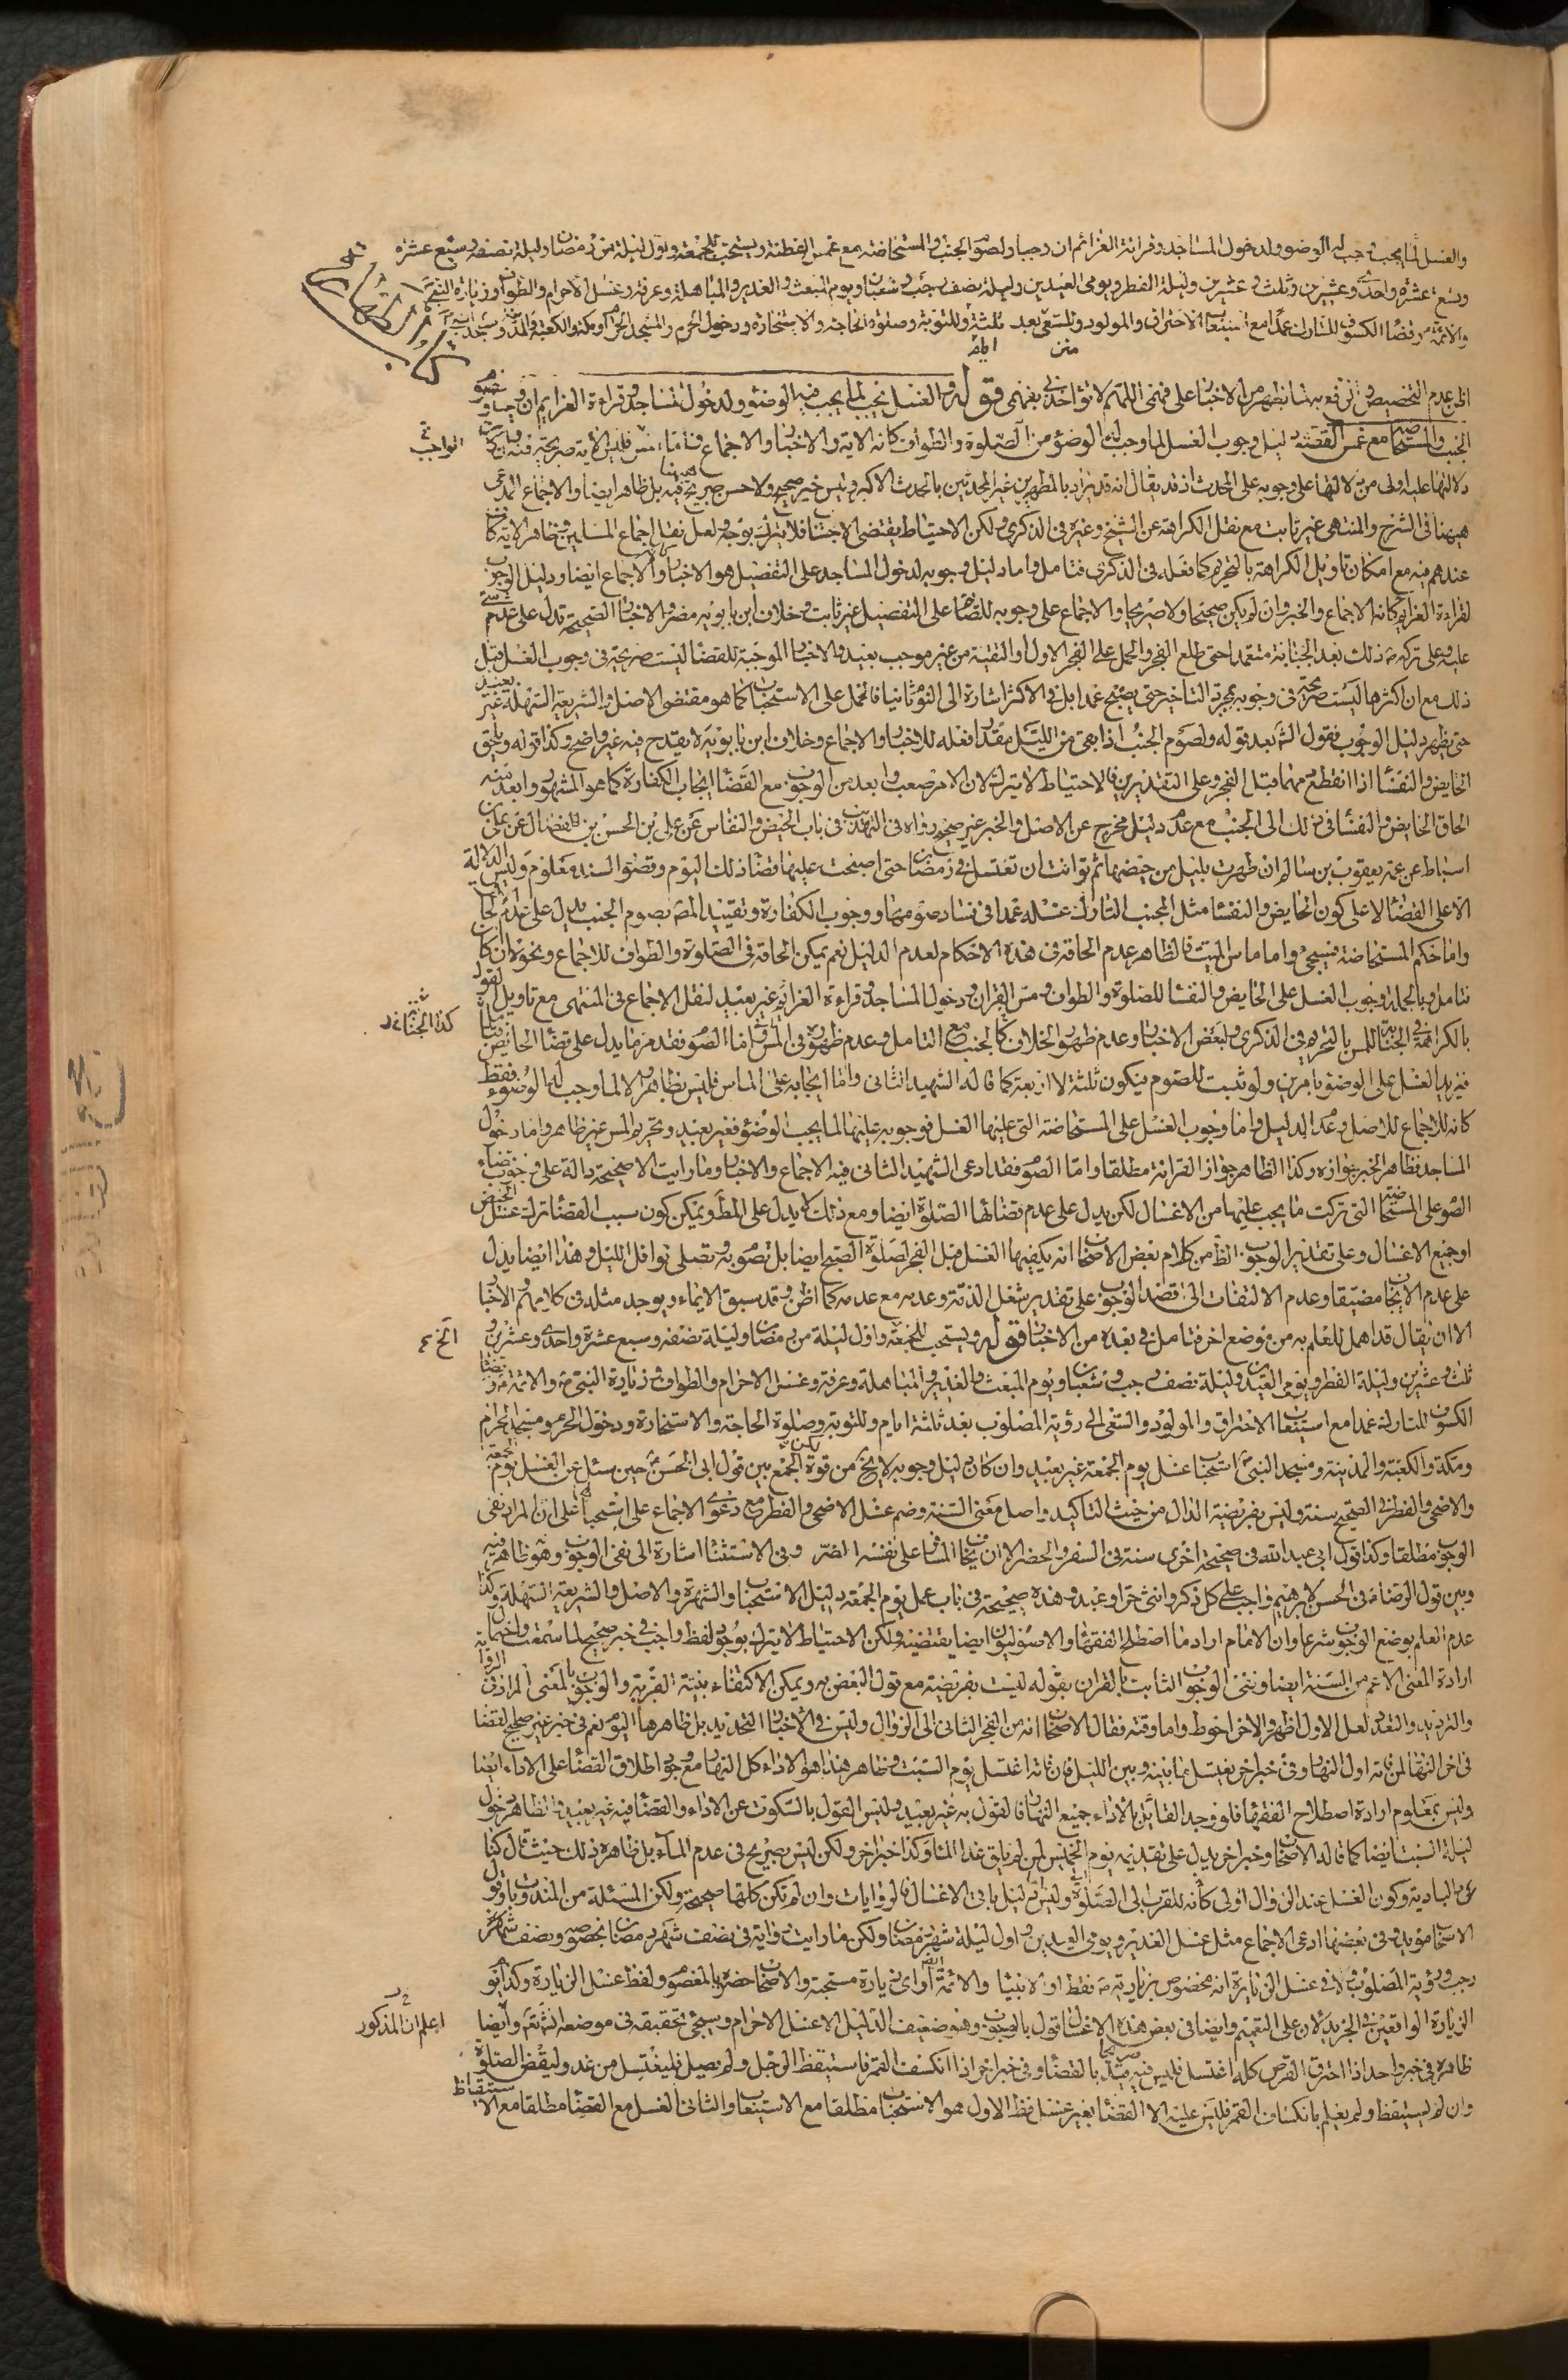 والغسل لما يجب وجب له الوضوء ولدخول المساجد وقرائة العزائم ان وجبا ولصوم الجنب والمستحاضة مع غمس القطنة ويستحب للجمعة واول ليلة من رمضان وليلة نصفه وسبع عشرة
وتسع عشرة واحدى وعشرين وثلث وعشرين وليلة الفطر ويومى العيدين وليلة نصف رجب وشعبان ويوم المبعث والغدير والمباهلة وعرفة وغسل الاحرام والطواف وزيارة النبي
والائمة وقضاء الكسوف للتارك عمدا مع استيعاب الاحتراق والمولود وللسعى بعد ثلثة وللتوبة وصلوة الحاجة والاستخارة ودخول الحرم والمسجد الحرام ومكة والكعبة والمدينة ومسجد
كتاب الطهارة
متن
اظن عدم التخصيص والرفع به مما يظهر من الاخبار على فهمى اللهم لا تؤاخذنى بفهمى قوله والغسل يجب لما يجب فيه الوضوء ولدخول المساجد وقراءة العزايم ان وجبا ولصوم
الجنب والمستحاضة مع غمس القطنة دليل وجوب الغسل لما وجب له الوضوء من الصلوة والطواف كانه الاية والاخبار والاجماع
الواجب
دلالتها عليه اولى من دلالتها على وجوبه على المحدث اذ قد يقال انه قد يراد بالمطهرين غير المحدثين بالحدث الاكبر وليس خبر صحيح ولا حسن صريح فيه بل ظاهر ايضا والاجماع المدعى
هيهنا فى الشرح والمنتهى غير ثابت مع نقل الكراهة عن الشيخ وغيره فى الذكرى ولكن الاحتياط يقتضى الاجتناب فلا يترك بوجه ولعل نقل اجماع المسلمين وظاهر الاية كاف
عندهم فيه مع امكان تاويل الكراهة بالتحريم كما فعله فى الذكرى فتامل واما دليل وجوبه لدخول المساجد على التفصيل هو الاخبار والاجماع ايضا ودليل الوجوب
لقراءة العزايم كانه الاجماع والخبر وان لم يكن صحيحا ولا صريحا والاجماع على وجوبه للصوم على التفصيل غير ثابت وخلاف ابن بابويه مضر والاخبار الصحيحة تدل على عدم شئ
عليه وعلى تركه ص ذلك بعد الجنابة متعمدا حتى طلع الفجر والحمل على الفجر الاول او التقية من غير موجب بعيد والاخبار الموجبة للقضاء ليست صريحة فى وجوب الغسل قبل
ذلك مع ان اكثرها ليست صريحة فى وجوبه بمجرد التاخير حتى يصبح عمدا بل فى الاكثر اشارة الى النوم ثانيا فالحمل على الاستحباب كما هو مقتضى الاصل والشريعة السهلة غير بعيد
حتى يظهر دليل الوجوب فقول الش بعد قوله ولصوم الجنب اذا بقى من الليل مقدار فعله للاخبار والاجماع وخلاف ابن بابويه لا يقدح فيه غير واضح وكذا قوله ويلحق
الحايض والنفساء اذا انقطع دمهما قبل الفجر وعلى التقديرين فالاحتياط لا يترك لان الامر صعب وابعد من الوجوب مع القضاء ايجاب الكفارة كما هو المشهور وابعد منه
الحاق الحايض والنفساء فى ذلك الى الجنب مع عدم دليل مخرج عن الاصل والخبر غير صحيح رواه فى التهذيب فى باب الحيض والنفاس عن على بن الحسن بن فضال عن على بن
اسباط عن عمه يعقوب بن سالم ان طهرت بليل من حيضها ثم توانت ان تغتسل فى رمضان حتى اصبحت عليها قضاء ذلك اليوم وقصور السند معلوم وليس له الدلالة
الا على القضاء لا على كون الحايض والنفساء مثل الجنب التارك غسله عمدا فى فساد صومهما ووجوب الكفارة وتقييد المص بصوم الجنب يدل على عدم الحاق
واما حكم المستحاضة فسيجئ واما ماس الميت فالظاهر عدم الحاقه فى هذه الاحكام لعدم الدليل نعم يمكن الحاقه فى الصلوة والطواف للاجماع ونحوه ان كان
فتامل وبالجملة وجوب الغسل على الحايض والنفساء للصلوة والطواف ومس القران ودخول المساجد وقراءة العزايم غير بعيد لنقل الاجماع فى المنتهى مع تاويل القول
بالكراهة فى الجنابة للمس بالتحريم فى الذكرى ولبعض الاخبار وعدم ظهور الخلاف كالجنب مع التامل وعدم ظهوره فى المس واما الصوم فقد مر ما يدل على قضاء الحايض
فيزيد الغسل على الوضوء بامرين ولو ثبت للصوم فيكون ثلثة لا اربعة كما قاله الشهيد الثانى واما ايجابه على الماس فليس بظاهر الا لما وجب له الوضوء فقط
كانه للاجماع للاصل وعدم الدليل واما وجوب الغسل على المستحاضة التى عليها الغسل فوجوبه عليها لما يجب الوضوء فغير بعيد وتحريم المس غير ظاهر واما دخول
المساجد فظاهر الخبر جوازه وكذا الظاهر جواز القرائة مطلقا واما الصوم فقد ادعى الشهيد الثانى فيه الاجماع والاخبار وما رايت الا صحيحة دالة على وجوب قضاء
الصوم على المستحاضة التى تركت ما يجب عليها من الاغسال لكن يدل على عدم قضائها الصلوة ايضا ومع ذلك لا يدل على المط ويمكن كون سبب القضاء ترك غسل الحيض
او جميع الاغسال وعلى تقدير الوجوب الظ من كلام بعض الاصحاب انه يكفيها الغسل قبل الفجر لصلوة الصبح ايضا بل تصوم به وتصلى نوافل الليل وهذا ايضا يدل
على عدم الايجاب مضيقا وعدم الالتفات الى قصد الوجوب على تقدير شغل الذمة وعدمه مع عدمه كما اظن وقد سبق الايماء ويوجد مثله فى كلامهم والاخبار
الا ان يقال قد اهمل للعلم به من موضع اخر فتامل فى بعده من الاخبار قوله ويستحب للجمعة واول ليلة من رمضان وليلة نصفه وسبع عشرة واحدى وعشرين و
ثلث وعشرين وليلة الفطر ويوم العيدين وليلة نصف رجب وشعبان ويوم المبعث والغدير والمباهلة وعرفة وغسل الاحرام والطواف وزيارة النبى والائمة وقضاء
الكسوف للتارك عمدا مع استيعاب الاحتراق والمولود والسعى الى رؤية المصلوب بعد ثلاثة ايام وللتوبة وصلوة الحاجة والاستخارة ودخول الحرم ومسجد الحرام
ومكة والكعبة والمدينة ومسجد النبى استحباب غسل يوم الجمعة غير بعيد وان كان دليل وجوبه لا يخ من قوة لكن الجمع بين قول ابى الحسن حين سئل عن الغسل يوم الجمعة
والاضحى والفطر فى الصحيح سنة وليس بفريضة الدال من حيث التاكيد واصل معنى السنة وضم غسل الاضحى والفطر مع دعوى الاجماع على استحبابه على ان المراد نفى
الوجوب مطلقا وكذا قول ابى عبد الله فى صحيحة اخرى سنة فى السفر والحضر الا ان يخاف المسافر على نفسه القر وفى الاستثناء اشارة الى نفى الوجوب وهو ظاهر فيه
وبين قول الرضا فى الحسن لابرهيم واجب على كل ذكر وانثى حر او عبد وهذه صحيحة فى باب عمل يوم الجمعة دليل الاستحباب والشهرة والاصل والشريعة السهلة وكذا
عدم العلم بوضع الوجوب شرعا وان الامام اراد ما اصطلح الفقهاء والاصوليون ايضا يقتضيه ولكن الاحتياط لا يترك بوجود لفظ واجب فى خبر صحيح لما سمعت واحتمال
ارادة المعنى الاعم من السنة ايضا ونفى الوجوب الثابت بالقران بقوله ليست بفريضة مع قول البعض به ويمكن الاكتفاء بنية القربة والوجوب بالمعنى المراد فى الرواية
والترديد والتعدد لعل الاول اظهر والاخر احوط واما وقته فقال الاصحاب انه من الفجر الثانى الى الزوال وليس فى الاخبار التحديد بل ظاهرها اليوم نعم فى خبر غير صحيح القضاء
فى اخر النهار لمن فاته اول النهار وفى خبر اخر يغتسل ما بينه وبين الليل فان فاته اغتسل يوم السبت وظاهر هذا هو الاداء كل النهار مع وجود اطلاق القضاء على الاداء ايضا
وليس بمعلوم ارادة اصطلاح الفقهاء فلو وجد القائل بالاداء جميع النهار فالقول به غير بعيد وليس القول بالسكوت عن الاداء والقضاء فيه غير بعيد والظاهر دخول
ليلة السبت ايضا كما قاله الاصحاب وخبر اخر يدل على تقديمه يوم الخميس لمن لم يلق غدا الماء وكذا خبر اخر ولكن ليس بصريح فى عدم الماء بل ظاهره ذلك حيث قال كنا
فى البادية وكون الغسل عند الزوال اولى كانه للقرب الى الصلوة وليس دليل باقى الاغسال فالروايات وان لم تكن كلها صحيحة ولكن المسئلة من المندوبات وقول
الاصحاب مؤيد وفى بعضها ادعى الاجماع مثل غسل الغدير ويومى العيدين واول ليلة شهر رمضان ولكن ما رايت رواية فى نصف شهر رمضان بخصوصه ونصف شهر
رجب ورؤية المصلوب ولا فى غسل الزيارة انه مخصوص بزيارته ص فقط او الانبياء والائمة او اى زيارة مستحبة والاصحاب خصوه بالمعصوم ولفظ غسل الزيارة وكذا يوم
الزيارة الواقعين فى الخبر يدلان على التعميم وايضا فى بعض هذه الاغسال قول بالوجوب وهو ضعيف الدليل الا غسل الاحرام وسيجئ تحقيقه فى موضعه انش تع وايضا
اعلم ان المذكور
ظاهره فى خبر واحد اذا احترق القرص كله اغتسل فليس فيه تقييد بالقضاء وفى خبر اخر اذا انكسف القمر فاستيقظ الرجل ولم يصل فليغتسل من غد وليقض الصلوة
وان لم يستيقظ ولم يعلم بانكساف القمر فليس عليه الا القضاء بغير غسل فظ الاول هو الاستحباب مطلقا مع الاستيعاب والثانى الغسل مع القضاء مطلقا مع الاستيقاظ